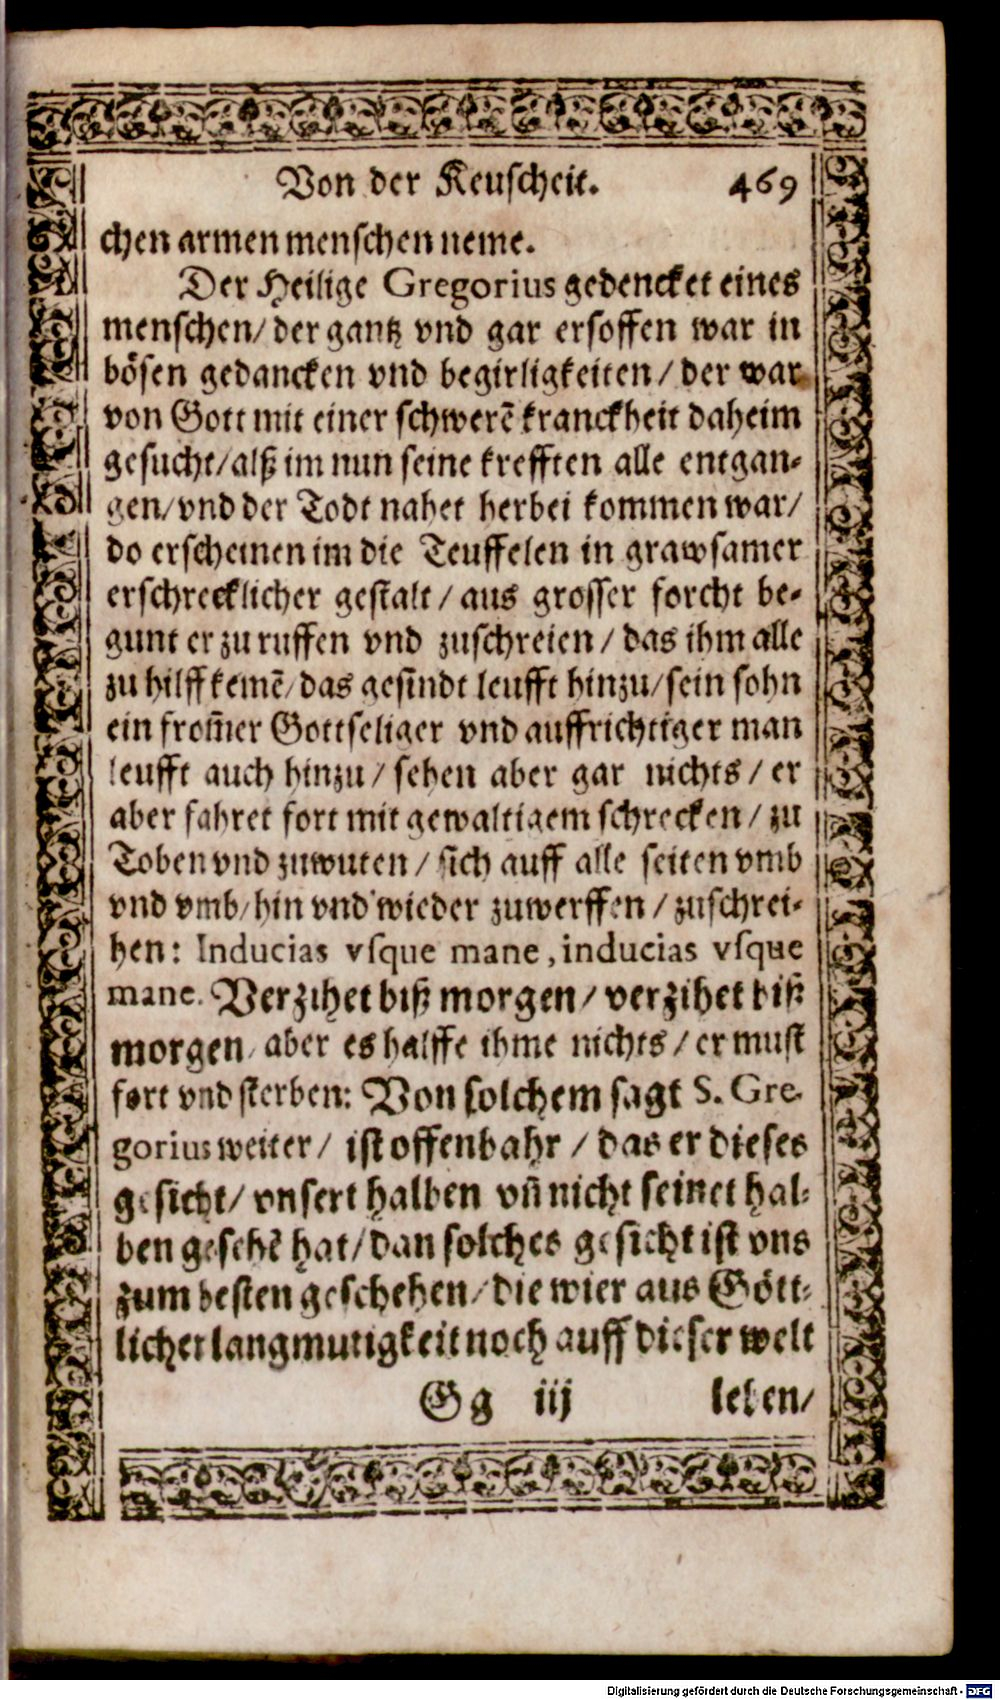 Von der Keuscheit. 469
chen armen menschen neme.
Der Heilige Gregorius gedencket eines
menschen/ der gantz vnd gar ersoffen war in
bösen gedancken vnd begirligkeiten/ der war
von Gott mit einer schwerẽ kranckheit daheim
gesucht/ alß im nun seine krefften alle entgan-
gen/ vnd der Todt nahet herbei kommen war/
do erscheinen im die Teuffelen in grawsamer
erschrecklicher gestalt/ aus grosser forcht be-
gunt er zu ruffen vnd zuschreien/ das ihm alle
zu hilff kemẽ/ das gesindt leufft hinzu/ sein sohn
ein from̃er Gottseliger vnd auffrichtiger man
leufft auch hinzu/ sehen aber gar nichts/ er
aber fahret fort mit gewaltigem schrecken/ zu
Toben vnd zuwuten/ sich auff alle seiten vmb
vnd vmb/ hin vnd wieder zuwerffen/ zuschrei-
hen: Inducias vsque mane, inducias vsque
mane. Verzihet biß morgen/ verzihet biß
morgen/ aber es halffe ihme nichts/ er must
fort vnd sterben: Von solchem sagt S. Gre-
gorius weiter/ ist offenbahr/ das er dieses
gesicht/ vnsert halben vñ nicht seinet hal-
ben gesehẽ hat/ dan solches gesicht ist vns
zum besten geschehen/ die wier aus Gött-
licher langmutigkeit noch auff dieser welt
Gg iij leben/
Digitalisierung gefördert durch die Deutsche Forschungsgemeinschaft - DFG